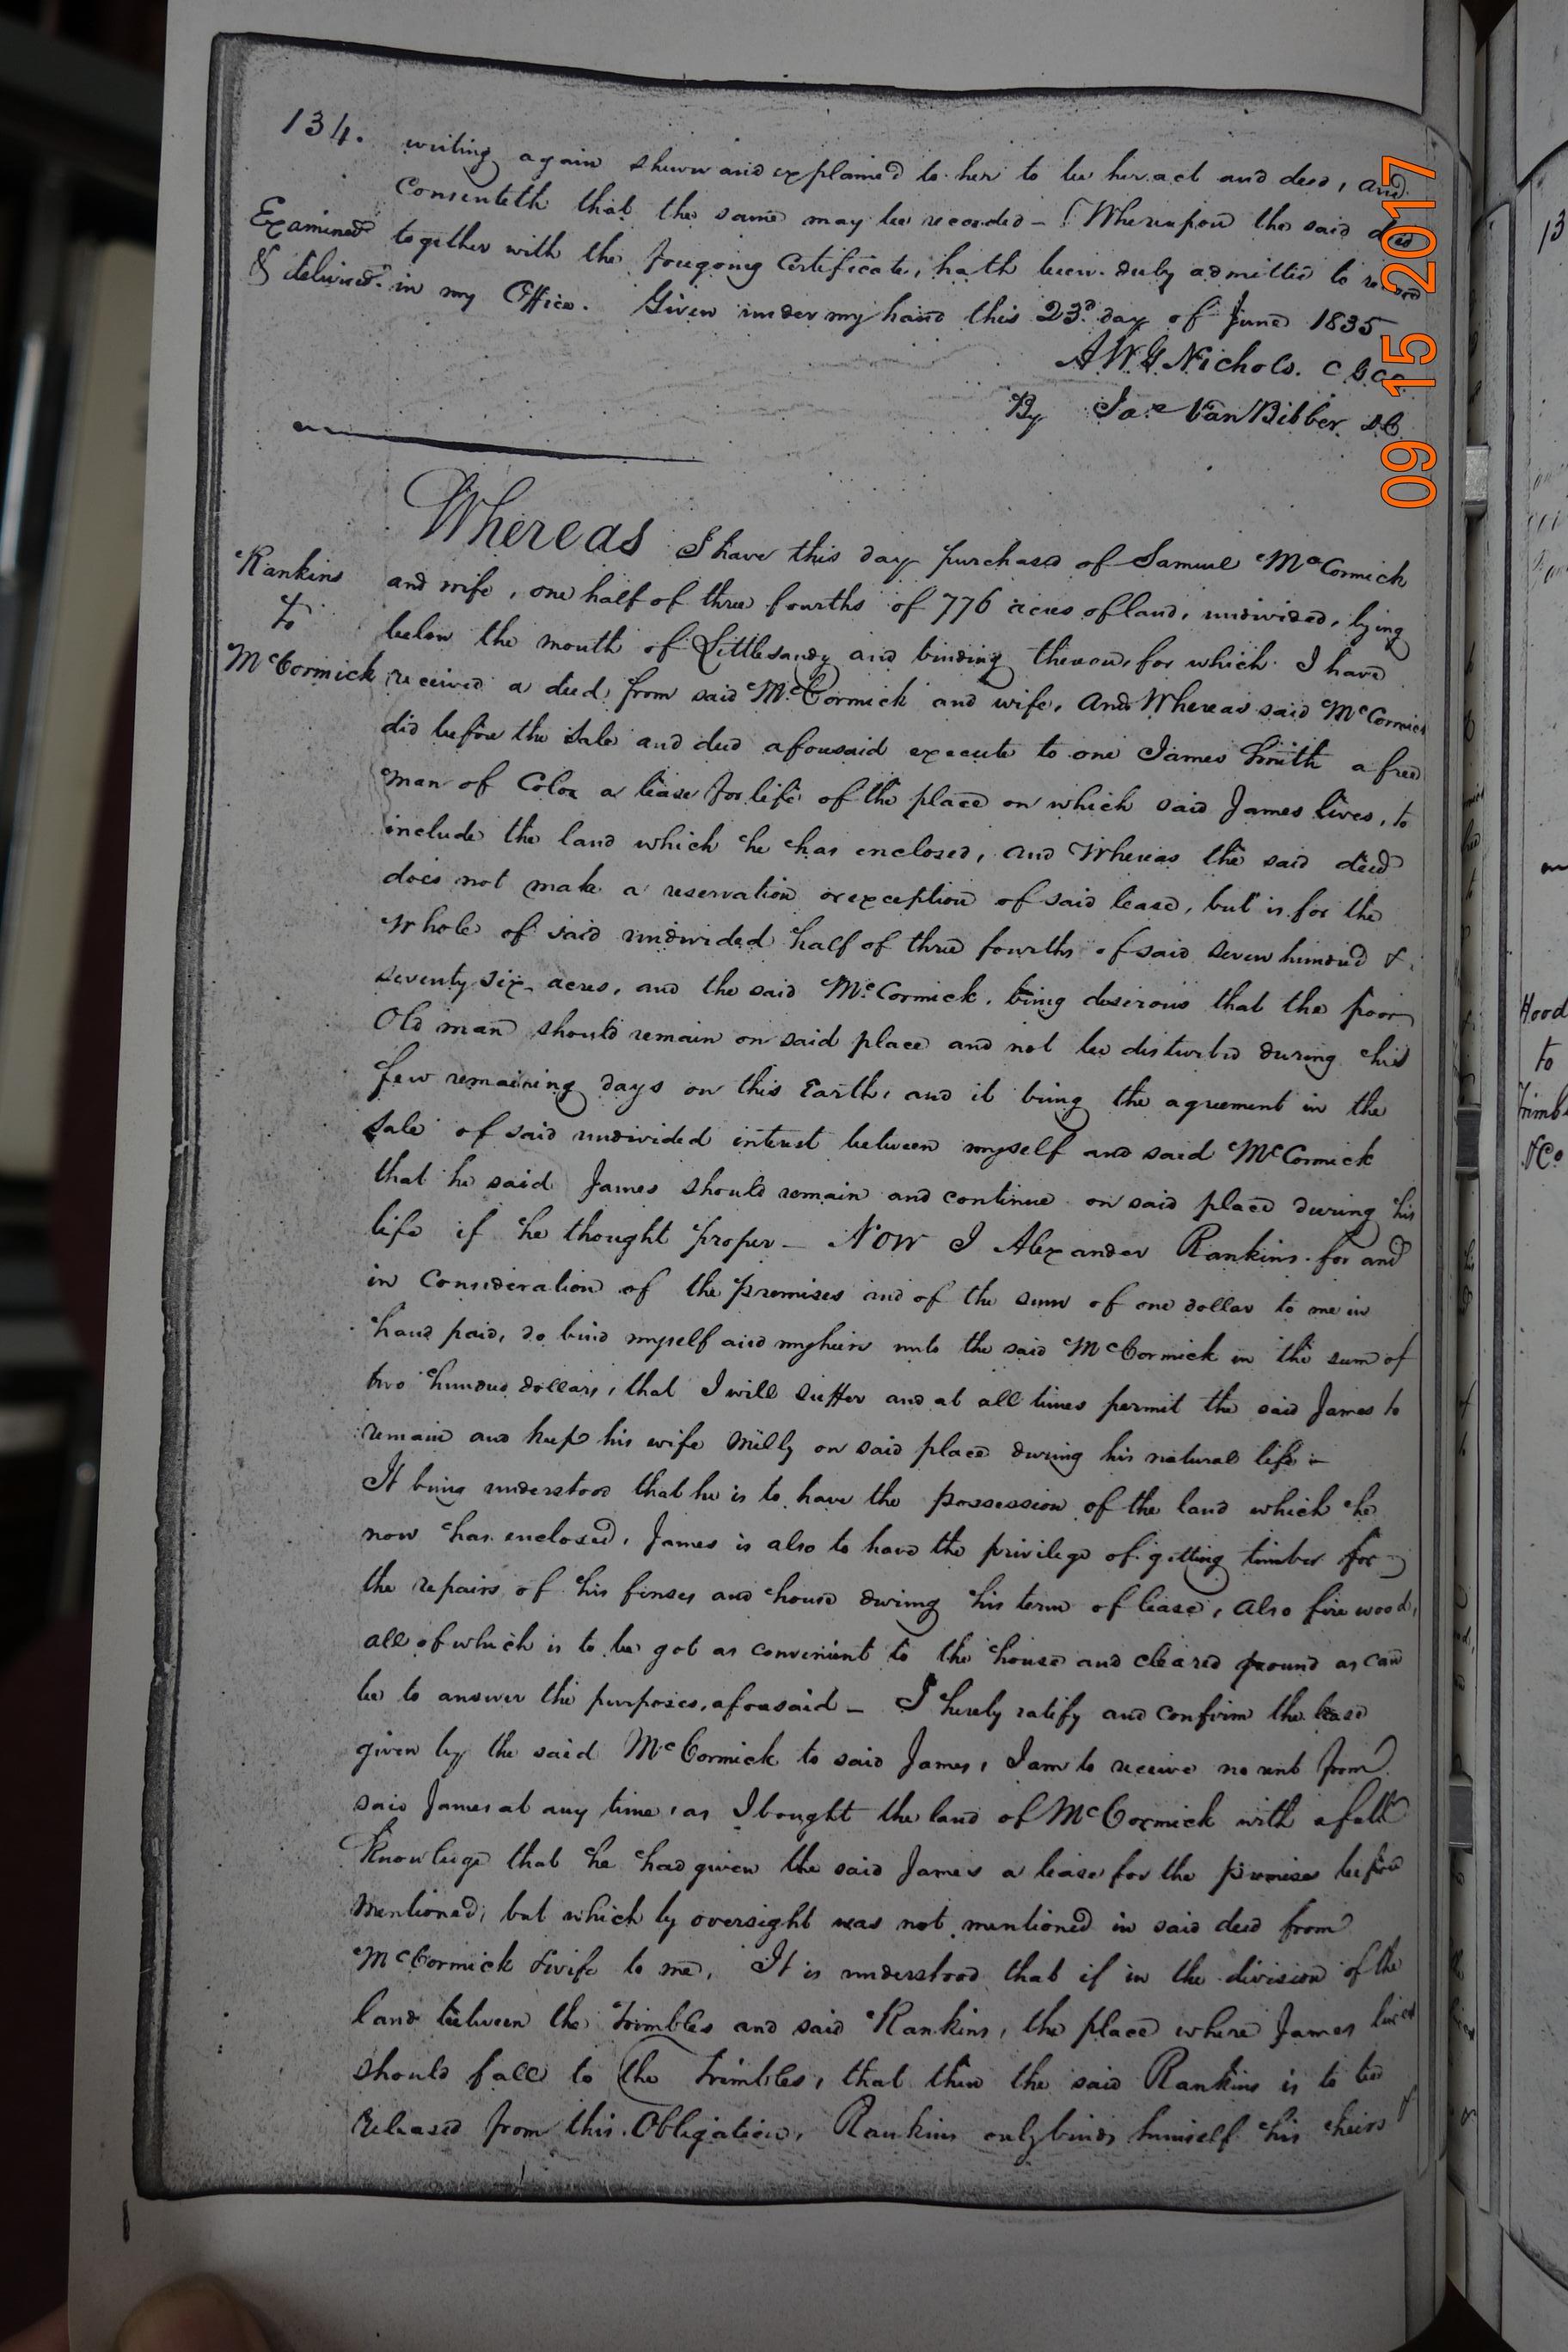 134.
writing again shewn and explained to her to be her act and deed, and
consenteth that the same may be recorded - Whereupon the said deed
Examined together with the foregoing Certificate, hath been duly admitted to record
& delivered. in my Office. Given under my hand this 23d day of June 1835
A W G Nichols. C G C C
By Jas Van Bibber D C
Whereas I have this day purchased of Samuel McCormick
Rankins and wife, one half of three fourths of 776 acres of land, undivided, lying
to below the mouth of Littlesandy and binding thereon, for which I have
McCormick received a deed from said McCormick and wife, And Whereas said McCormick
did before the Sale and deed aforesaid execute to one James Smith a free
man of Color a lease for life of the place on which said James lives, to
include the land which he has enclosed, and Whereas the said deed
does not make a reservation or exception of said lease, but is for the
Whole of said undivided half of three fourths of said seven hundred &
seventy six acres, and the said McCormick, being desirous that the poor
Old man should remain on said place and not be disturbed during his
few remaining days on this Earth, and it being the agreement in the
Sale of said undivided interest between myself and said McCormick
that he said James should remain and continue on said place during his
life if he thought proper - Now I Alexander Rankins for and
in Consideration of the premises and of the sum of one dollar to me in
hand paid, do bind myself and my heirs unto the said McCormick in the sum of
two hundred dollars, that I will suffer and at all times permit the said James to
remain and keep his wife Milly on said place during his natural life -
It being understood that he is to have the possession of the land which he
now has enclosed, James is also to have the privilege of getting timber for
the repairs of his finses and house during his term of lease, Also fire wood,
all of which is to be got as convenient to the house and cleared ground as can
be to answer the purposes, aforesaid - I hereby ratify and confirm the lease
given by the said McCormick to said James, I am to receive no rent from
said James at any time, as I bought the land of McCormick with a full
Knowledge that he had given the said James a lease for the premises before
mentioned, but which by oversight was not mentioned in said deed from
McCormick & wife to me, It is understood that if in the division of the
land between the Trimbles and said Rankins, the place where James lives
should fall to the Trimbles, that then the said Rankins is to be
released from this Obligation, Rankins only binds himself his heirs &
09 15 2017
13
Hood
to
Trimb
& Co